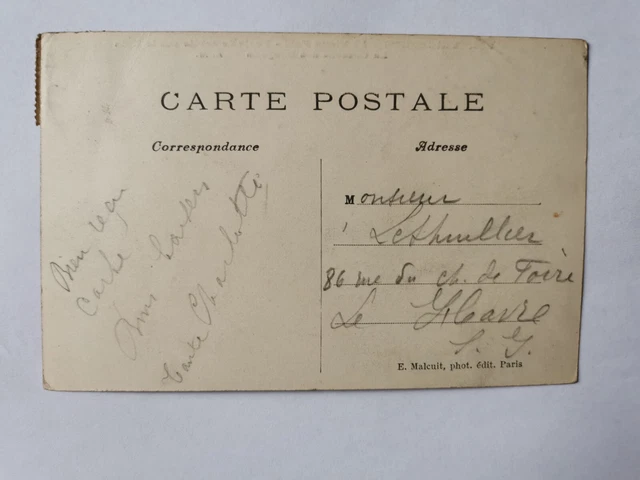 CARTE POSTALE
Correspondance
Adresse
Bien reçu
carte
Bons baisers
tante Charlotte
Monsieur
Lethuillier
86 rue du ch. de Foire
Le Havre
S. I.
E. Malcuit, phot. édit. Paris